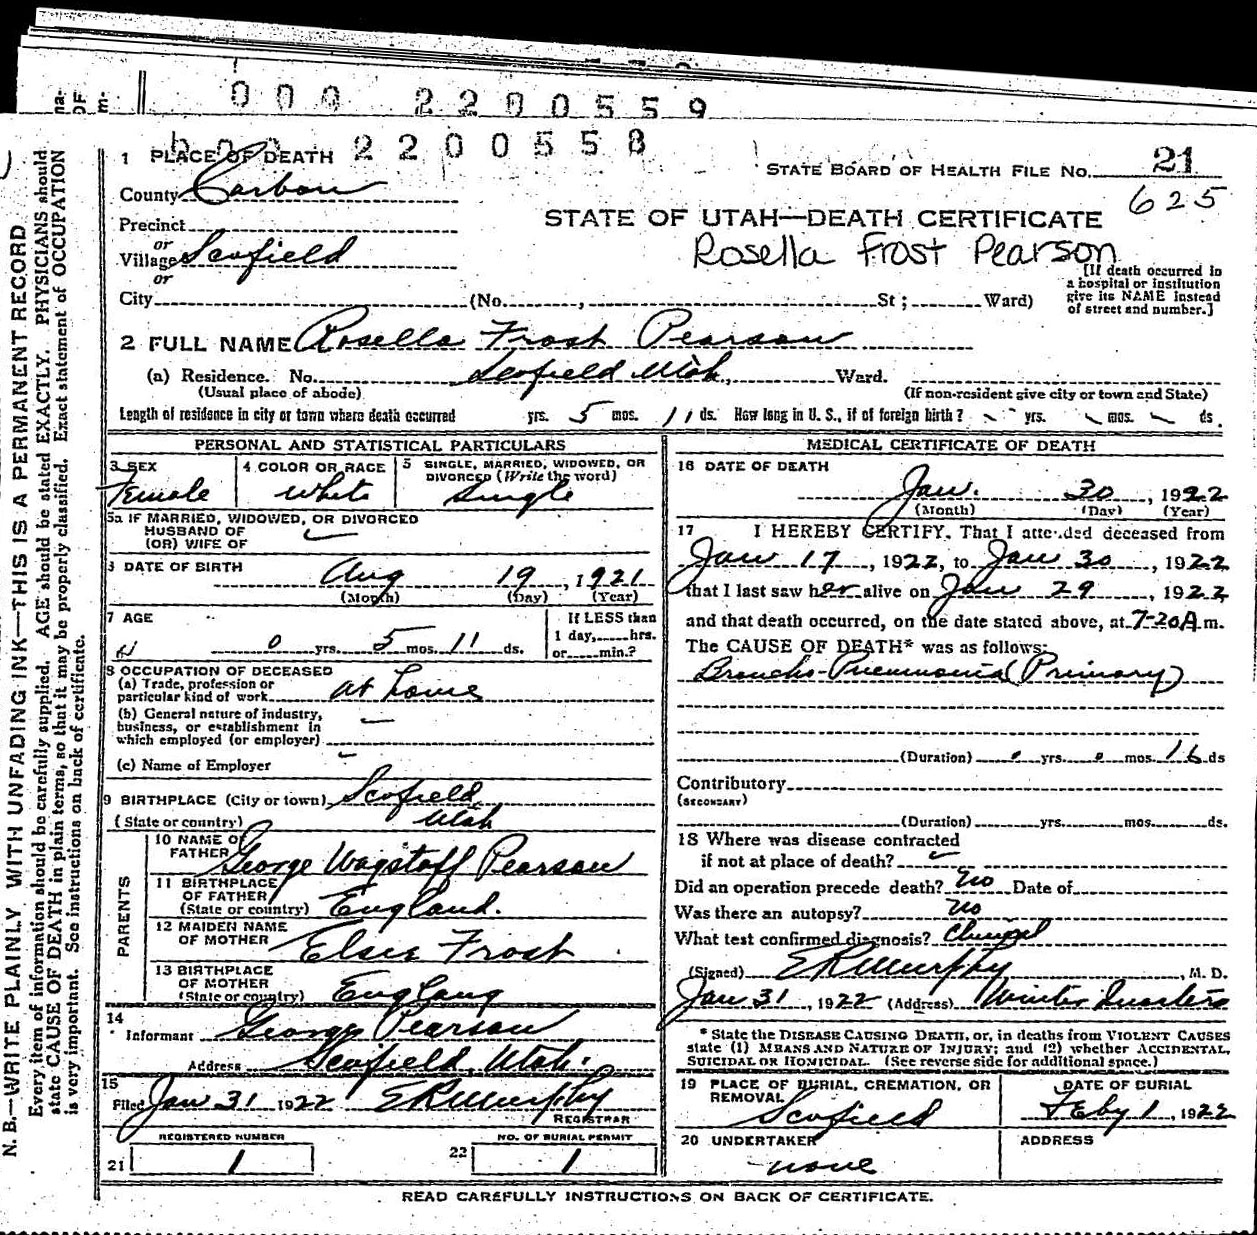 000 2200559
2200558
1 PLACE OF DEATH
STATE BOARD OF HEALTH FILE No. 21
County Carbon
625
STATE OF UTAH—DEATH CERTIFICATE
Precinct
or
Rosella Frost Pearson
Village Scofield
or
City (No. , St ; Ward)
[If death occurred in
a hospital or institution
give its NAME instead
of street and number.]
2 FULL NAME Rosella Frost Pearson
(a) Residence. No. Scofield Utah, Ward.
(Usual place of abode) (If non-resident give city or town and State)
Length of residence in city or town where death occurred yrs. 5 mos. 11 ds. How long in U. S., if of foreign birth? yrs. mos. ds.
PERSONAL AND STATISTICAL PARTICULARS
3 SEX
Female
4 COLOR OR RACE
White
5 SINGLE, MARRIED, WIDOWED, OR
DIVORCED (Write the word)
Single
5a IF MARRIED, WIDOWED, OR DIVORCED
HUSBAND OF
(OR) WIFE OF
DATE OF BIRTH
Aug 19, 1921
(Month) (Day) (Year)
7 AGE
0 yrs. 5 mos. 11 ds.
If LESS than
1 day, hrs.
or min.?
8 OCCUPATION OF DECEASED
(a) Trade, profession or
particular kind of work at home
(b) General nature of industry,
business, or establishment in
which employed (or employer)
(c) Name of Employer
9 BIRTHPLACE (City or town) Scofield
(State or country) Utah
PARENTS
10 NAME OF
FATHER George Wagstaff Pearson
11 BIRTHPLACE
OF FATHER
(State or country) England.
12 MAIDEN NAME
OF MOTHER Elsie Frost
13 BIRTHPLACE
OF MOTHER
(State or country) England
14
Informant George Pearson
Address Scofield, Utah.
15
Filed Jan 31, 1922 E R Murphy
REGISTRAR
REGISTERED NUMBER
21 1
NO. OF BURIAL PERMIT
22 1
MEDICAL CERTIFICATE OF DEATH
16 DATE OF DEATH
Jan. 30, 1922
(Month) (Day) (Year)
17 I HEREBY CERTIFY, That I attended deceased from
Jan 17, 1922, to Jan 30, 1922
that I last saw her alive on Jan 29, 1922
and that death occurred, on the date stated above, at 7-20 A m.
The CAUSE OF DEATH* was as follows:
Broncho-Pneumonia (Primary)
(Duration) 0 yrs. 0 mos. 16 ds
Contributory
(SECONDARY)
(Duration) yrs. mos. ds.
18 Where was disease contracted
if not at place of death?
Did an operation precede death? No Date of
Was there an autopsy? No
What test confirmed diagnosis? Clinical
(Signed) E R Murphy, M. D.
Jan 31, 1922 (Address) Winter Quarters
* State the DISEASE CAUSING DEATH, or, in deaths from VIOLENT CAUSES
state (1) MEANS AND NATURE OF INJURY; and (2) whether ACCIDENTAL,
SUICIDAL OR HOMICIDAL. (See reverse side for additional space.)
19 PLACE OF BURIAL, CREMATION, OR
REMOVAL
Scofield
DATE OF BURIAL
Feby 1, 1922
20 UNDERTAKER
none
ADDRESS
READ CAREFULLY INSTRUCTIONS ON BACK OF CERTIFICATE.
N. B.—WRITE PLAINLY WITH UNFADING INK—THIS IS A PERMANENT RECORD
Every item of information should be carefully supplied. AGE should be stated EXACTLY. PHYSICIANS should
state CAUSE OF DEATH in plain terms, so that it may be properly classified. Exact statement of OCCUPATION
is very important. See instructions on back of certificate.